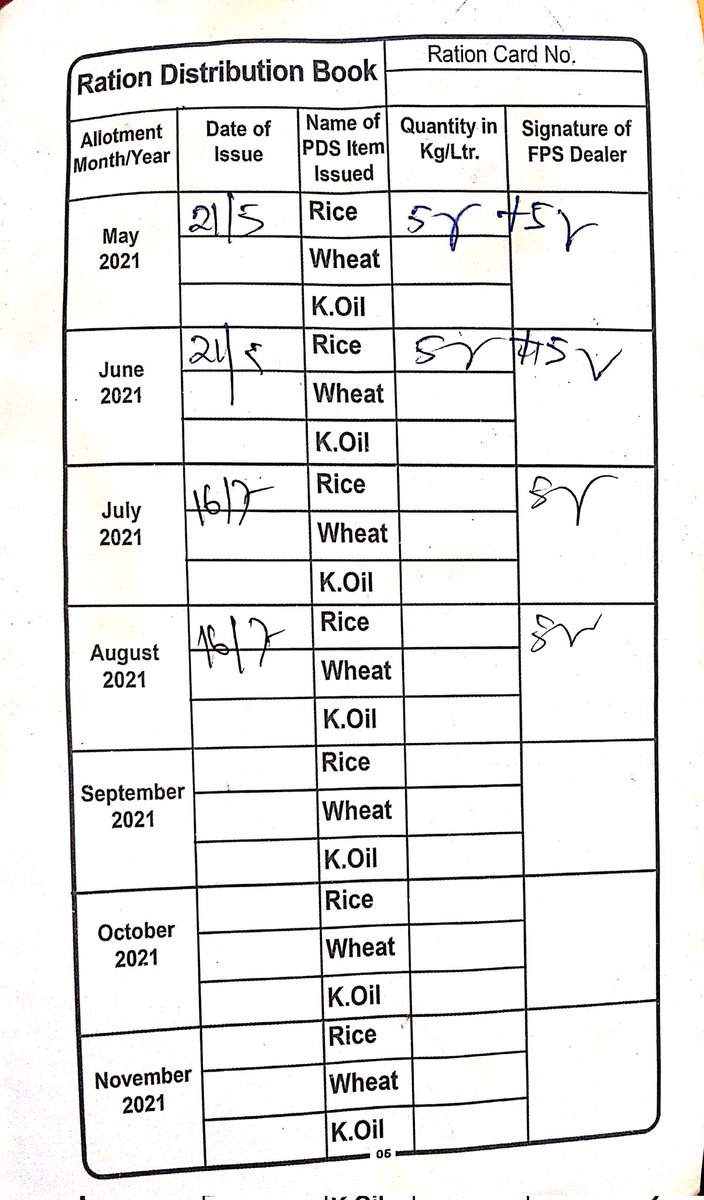 Ration Distribution Book
Ration Card No.
Allotment Month/Year
Date of Issue
Name of PDS Item Issued
Quantity in Kg/Ltr.
Signature of FPS Dealer
May 2021
21/5
Rice
5
+5
Wheat
K.Oil
June 2021
21/5
Rice
5
+5
Wheat
K.Oil
July 2021
16/7
Rice
Wheat
K.Oil
August 2021
16/7
Rice
Wheat
K.Oil
September 2021
Rice
Wheat
K.Oil
October 2021
Rice
Wheat
K.Oil
November 2021
Rice
Wheat
K.Oil
05